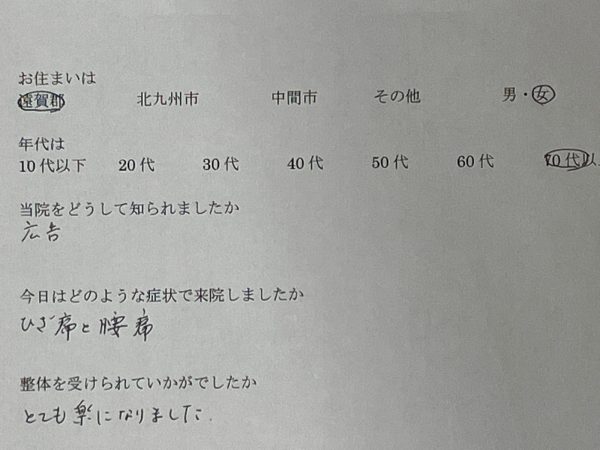 お住まいは
遠賀郡 北九州市 中間市 その他 男・女
年代は
10代以下 20代 30代 40代 50代 60代 70代以
当院をどうして知られましたか
広告
今日はどのような症状で来院しましたか
ひざ痛と腰痛
整体を受けられていかがでしたか
とても楽になりました.